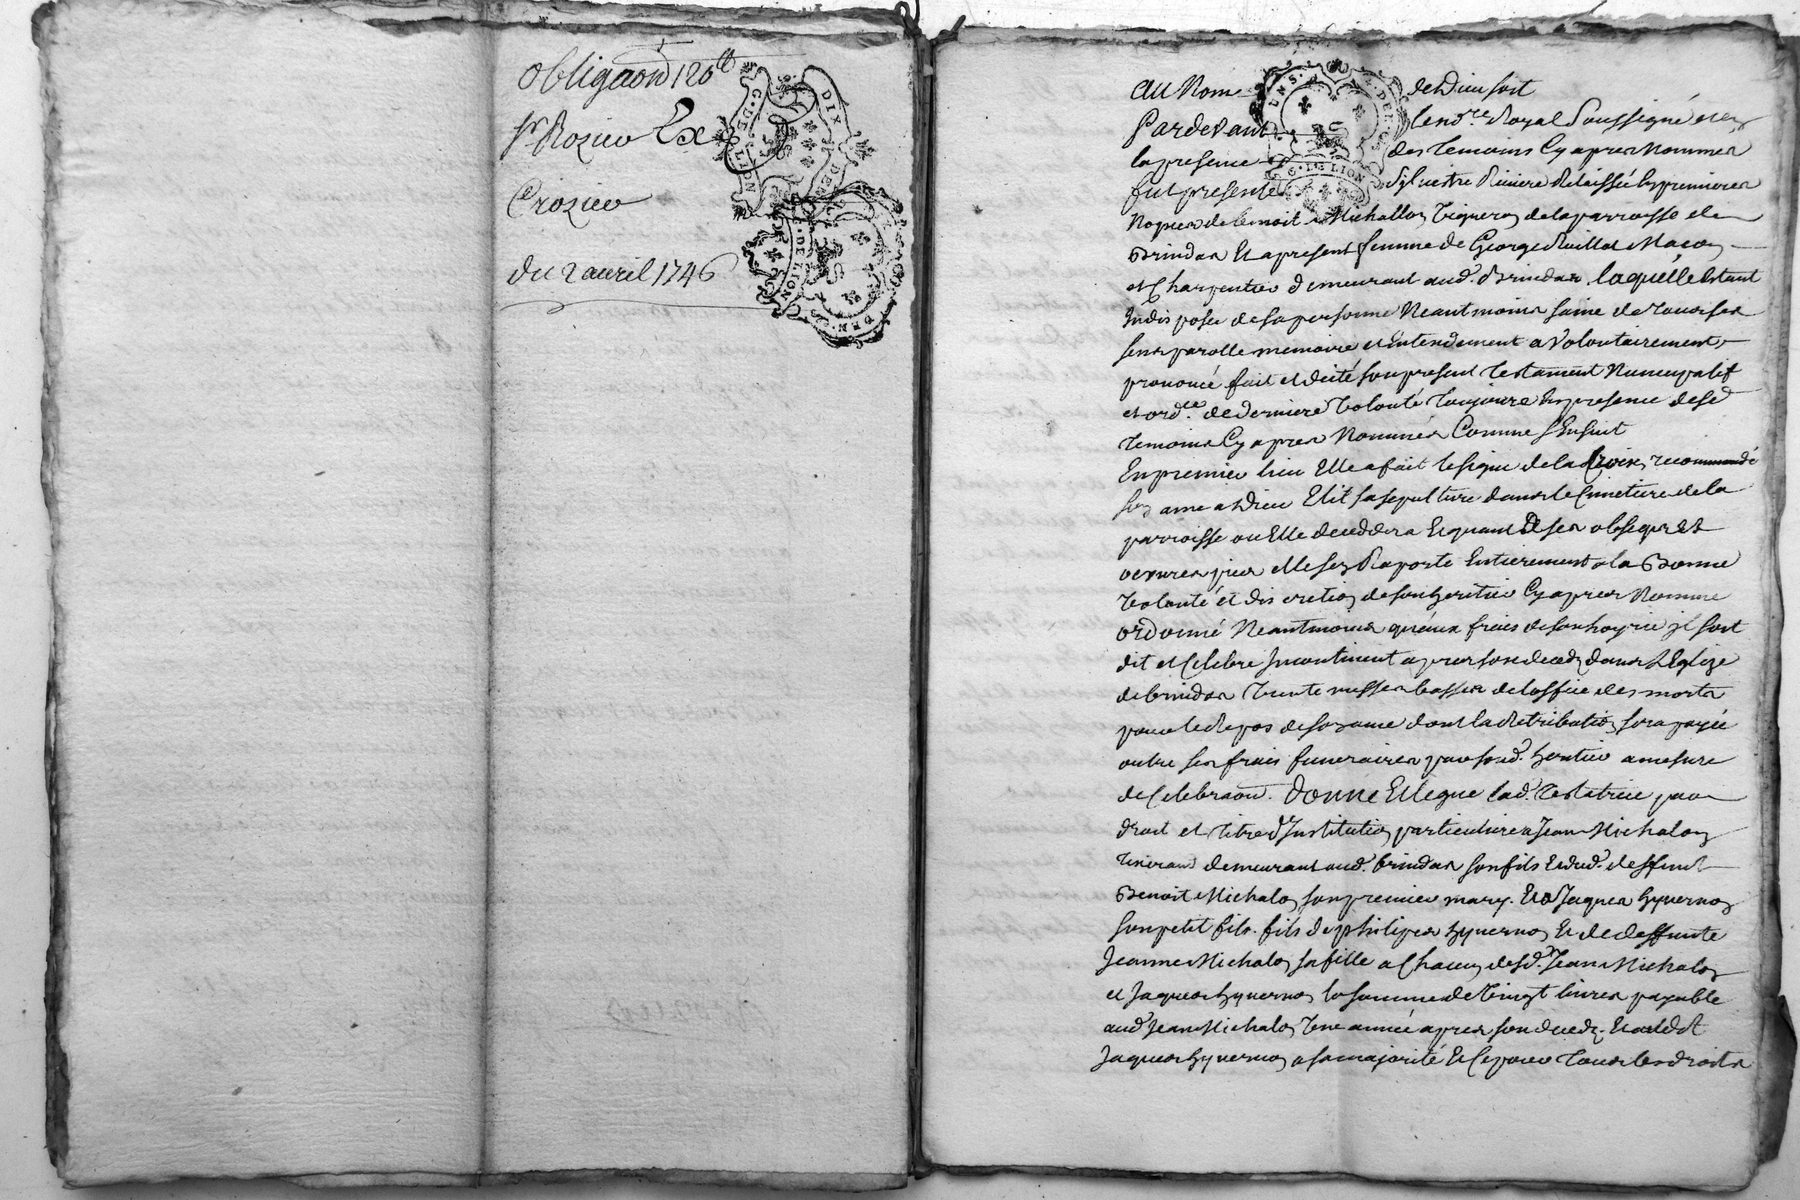 Obligaon 120lt
Sr Rozier Lx
Crozier
du 2 avril 1746
G. DE LION
DIX DEN
G. DE LION
DEN. RS
Au Nom de Dieu soit
Pardevant le nore Royal soussigné et en
la presence des temoins Cy apres nommes
fut presente Silvestre Riviere délaissée En premieres
Nopces de benoit Michallon Vigneron de la parroisse de
Brindas Et a present femme de George Rullat Macon
et Charpentier demeurant aud. Brindas laquelle Estant
Indisposée de sa personne Neantmoins saine de tous ses
sens parolle memoire et Entendement a Volontairement
prononcé fait et dicté son present testament Nuncupatif
et ordce de derniere Volonté toujours En presence desd
temoins Cy apres Nommes Comme s'Ensuit
En premier lieu Elle a fait le signe de la Croix recommandé
son ame a Dieu Elit sa sepulture dans le Cimetiere de la
parroisse ou Elle decedera Et quant a ses obseques et
oeuvres pies elle s'en Raporte Entierement a la Bonne
Volonté et discretion de son heritier Cy apres Nommé
ordonné Neantmoins qu'aux frais de son hoyrie il soit
dit et Celebré Incontinent apres son deced dans L'Eglize
de brindas trente messes basses de l'office des morts
pour le Repos de son ame dont la Retribution sera payée
outre ses frais funeraires par sond. heritier a mesure
de Celebraon. Donne Et legue lad. testatrice par
droit et titre d'Institution particuliere a Jean Michalon
demeurant aud. brindas son fils Et dud. deffunt
Benoit Michalon son premier mary. Et a Jaques hyvernon
son petit fils. fils de philipes hyvernon Et de deffunte
Jeanne Michalon sa fille a Chacun desd. Jean Michalon
et Jaques hyvernon la somme de Vingt livres payable
aud Jean Michalon Une année apres son deced. Et aud
Jaques hyvernon a sa majorité Et Ce pour tous les droits